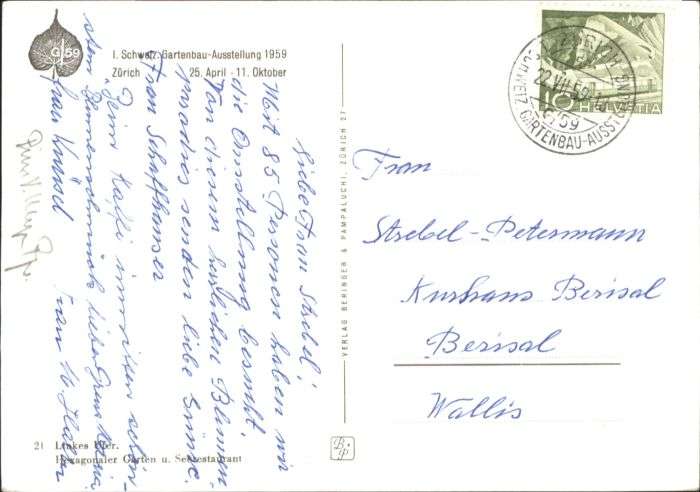 G59
I. Schweiz. Gartenbau-Ausstellung 1959
Zürich 25. April - 11. Oktober
Liebe Frau Strebel!
Mit 85 Personen haben wir
die Ausstellung besucht.
Von diesem herrlichen Blumen
paradies senden liebe Grüsse.
Frau Schaffhauser
Beim Kaffi inmitten schön-
stem Blumenschmuck liebe Grüsse
Frau
Frau M.
21 Linkes Ufer.
Hexagonaler Garten u. Seerestaurant
VERLAG BERINGER & PAMPALUCHI, ZÜRICH 27
BP
HELVETIA
10
ZÜRICH
22.VII.59
G59
SCHWEIZ. GARTENBAU-AUSST
Frau
Strebel-Petermann
Kurhaus Berisal
Berisal
Wallis